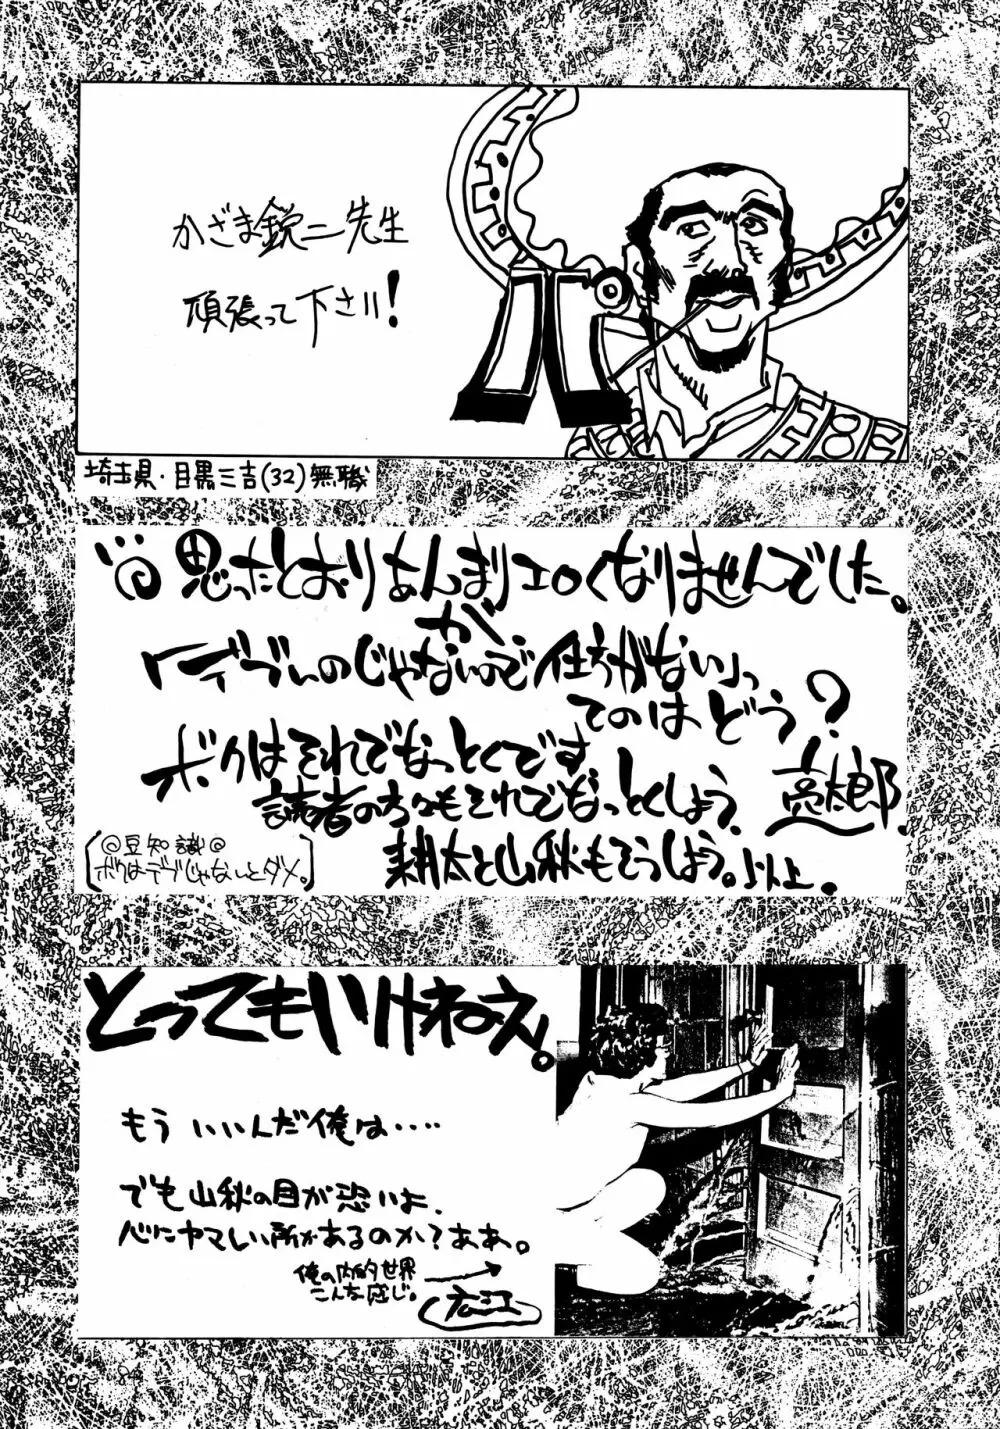 かざま鋭二先生
頑張って下さい!
埼玉県・目黒三吉(32)無職
思ったとおりあんまりエロくなりませんでした。
が
「デブいのじゃないので仕方がない」っ
てのはどう?
ボクはそれでなっとくです
読者の方々もそれでなっとくしよう。
亮太郎
耕太と山秋もそうしよう。以上。
◎豆知識◎
ボクはデブじゃないとダメ。
とってもいけねえ。
もういいんだ俺は‥‥
でも山秋の目が恐いよ。
心にヤマしい所があるのか?ああ。
俺の内的世界
こんな感じ。
広江